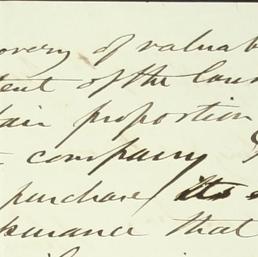 overy of valuab
tent of the law
tain proportion
company
purchase its
surance that